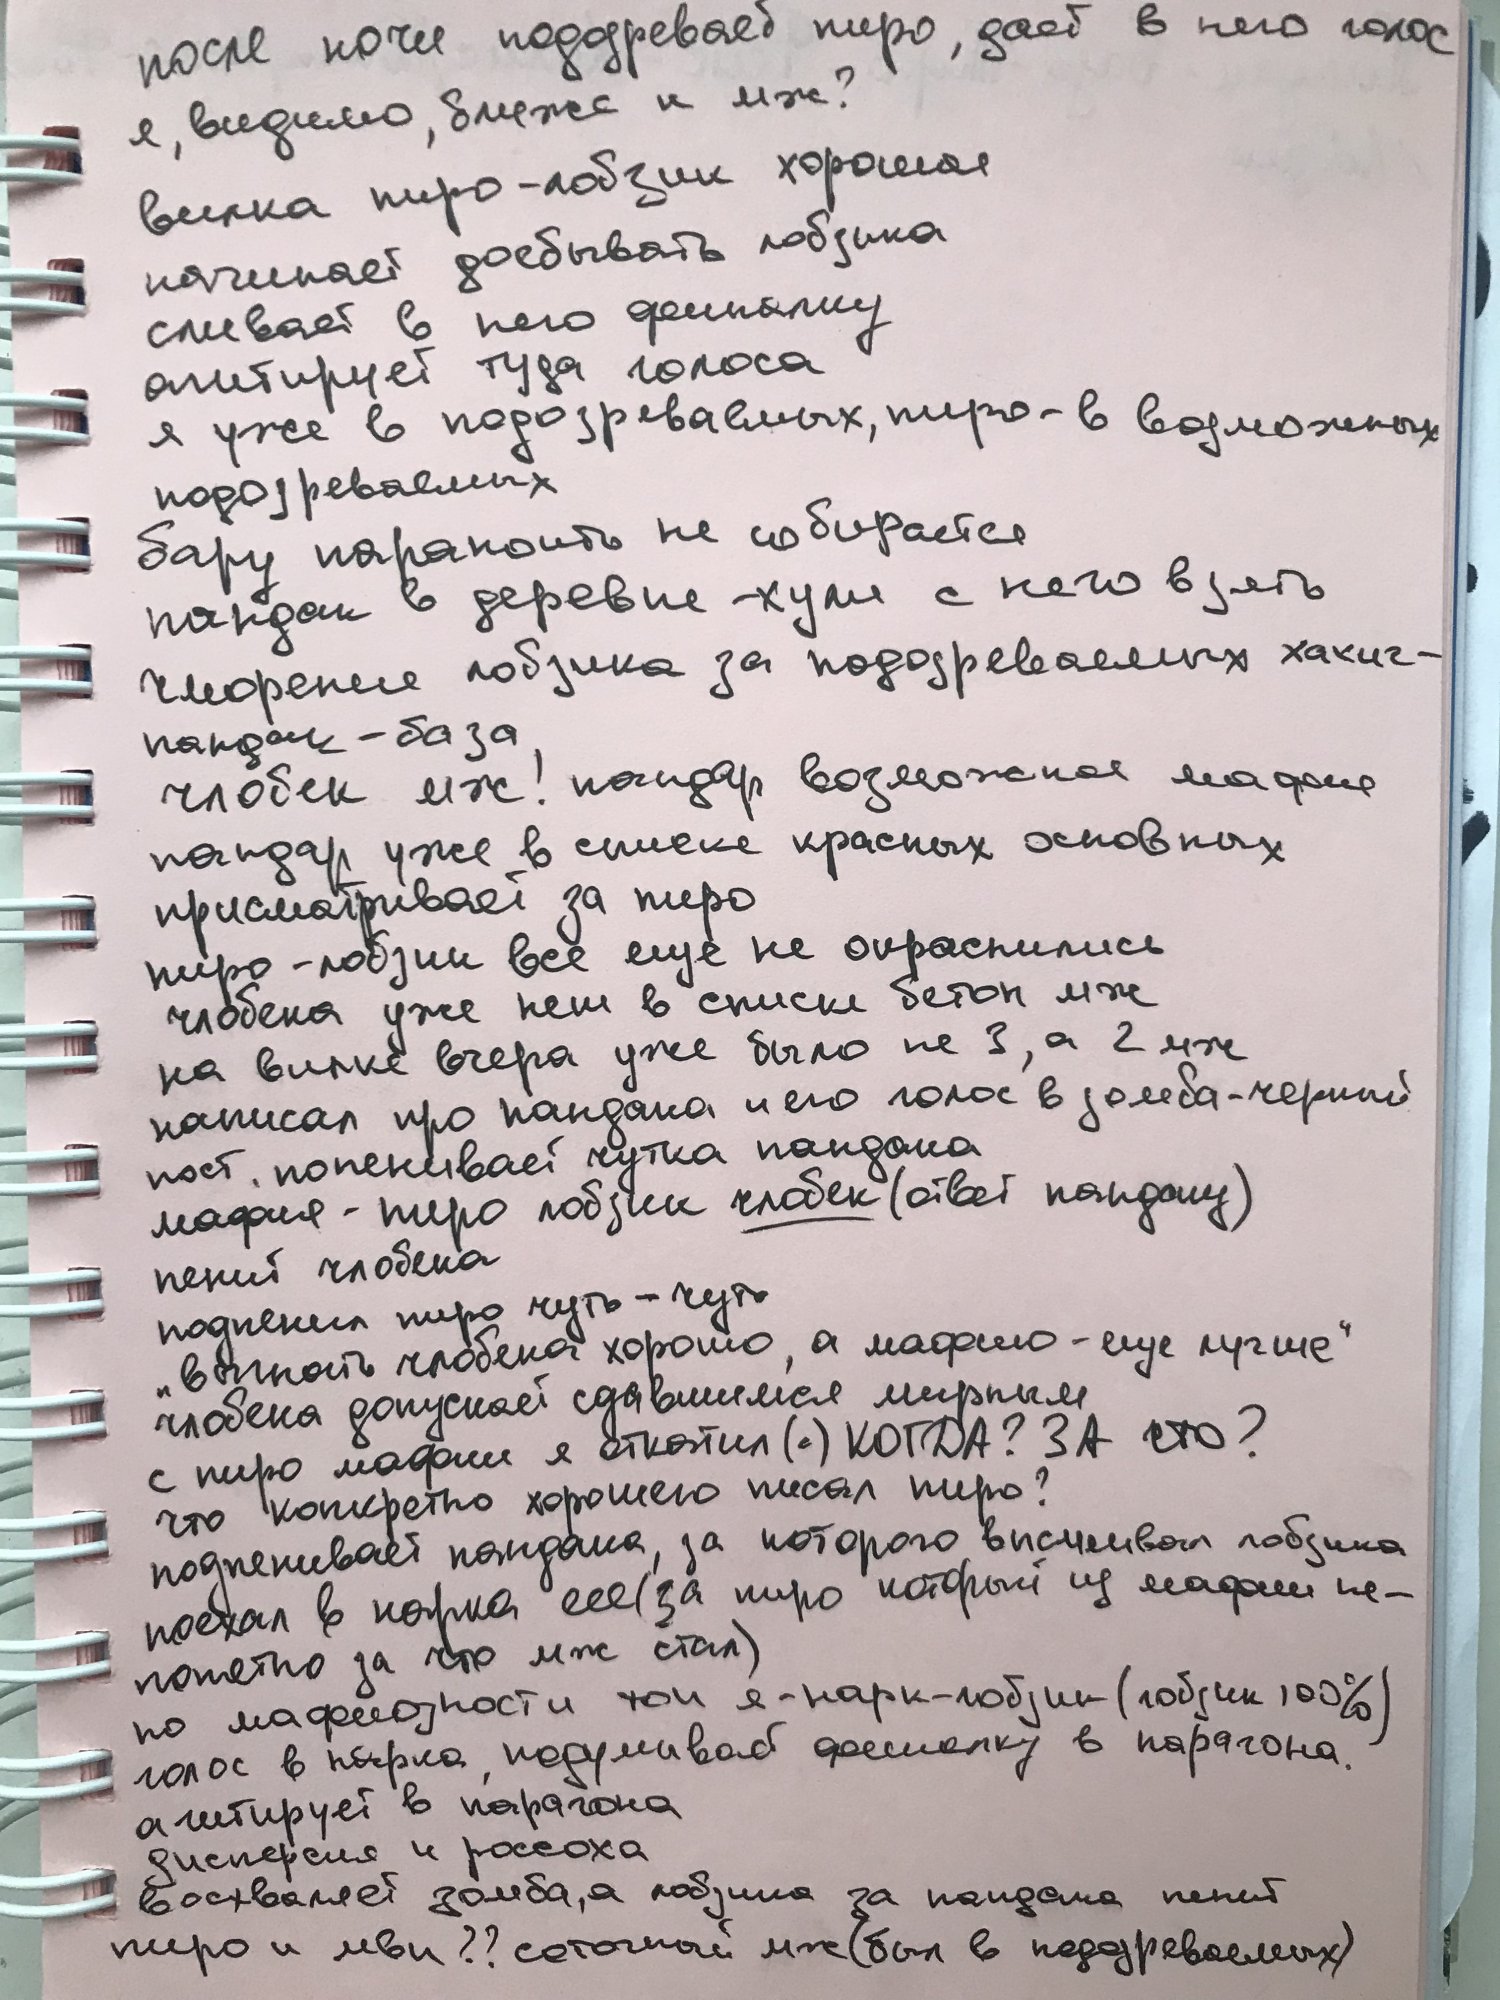 после ночи подозревает пиро, дает в него голос
я, видимо, ближе к мж?
вилка пиро-лобзик хорошая
начинает доебывать лобзика
сливает в него финалку
агитирует туда голоса
я уже в подозреваемых, пиро-в возможных
подозреваемых
бару параноить не собирается
пандак в деревне-хули с него взять
чморение лобзика за подозреваемых хакиг-
пандак-база
члобек мж! пандар возможная мафия
пандар уже в списке красных основных
присматривает за пиро
пиро-лобзик все еще не окраснились
члобека уже нет в списке бетон мж
на вилке вчера уже было не 3, а 2 мж
написал про пандака и его голос в зомба-черный
пост. попенивает чутка пандака
мафия-пиро лобзик члобек (ответ пандаку)
пенит члобека
подпенил пиро чуть-чуть
"вгнать члобека хорошо, а мафию-еще лучше"
члобека допускает сдавшимся мирным
с пиро мафии я откатил(.) КОГДА? ЗА что?
что конкретно хорошего писал пиро?
подпенивает пандака, за которого высмеивал лобзика
поехал в нарка еее(за пиро который из мафии не-
понятно за что мж стал)
по мафиозности топ я-нарк-лобзик (лобзик 100%)
голос в нарка, подумывает финалку в парагона.
агитирует в парагона
дисперсия и россоха
восхваляет зомба, а лобзика за пандака пенит
пиро и мви?? соточный мж (был в подозреваемых)